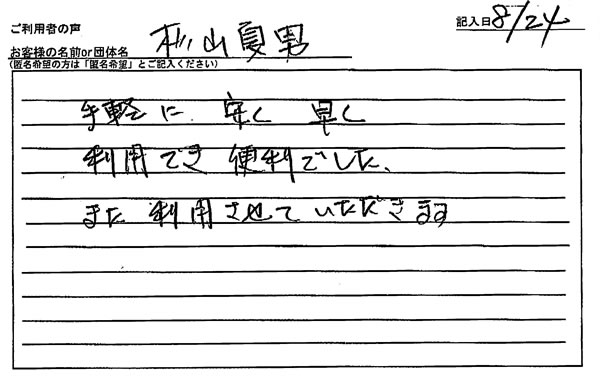 ご利用者の声
記入日 8/24
お客様の名前or団体名 杉山夏男
(匿名希望の方は「匿名希望」とご記入ください)
手軽に 安く 早く
利用でき 便利でした、
また 利用させていただきます